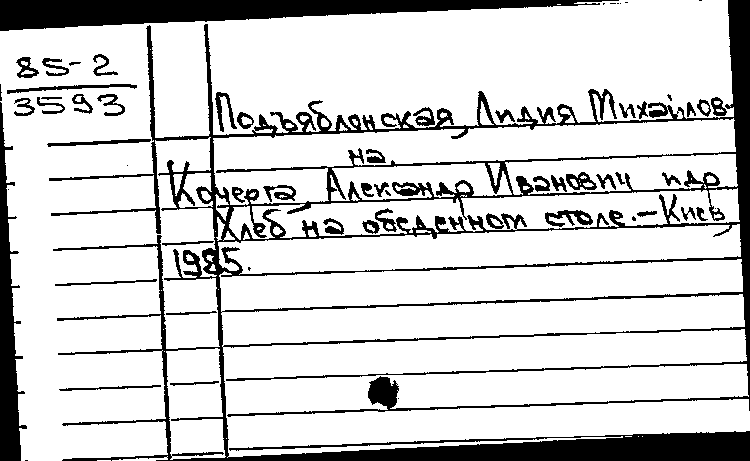 85-2
3593
Подъяблонская, Лидия Михайлов-
на.
Кочерга, Александр Иванович и др
Хлеб на обеденном столе.-Киев,
1985.